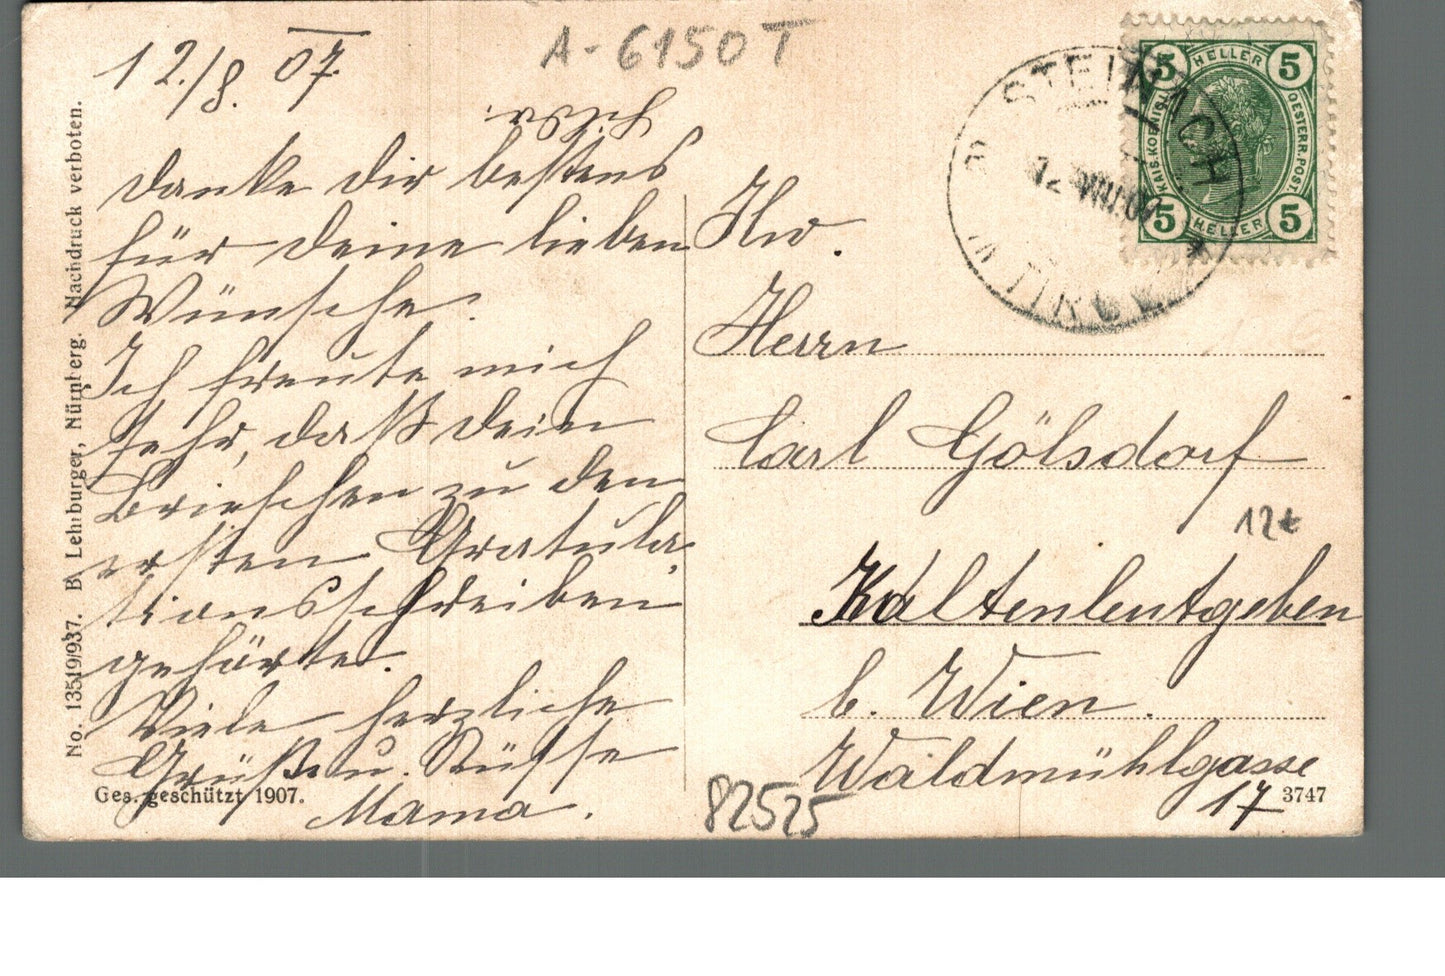 A-6150T
12./8. 07.
danke dir bestens
für deine lieben
Wünsche.
Ich freute mich
sehr, daß dein
Briefchen zu den
ersten Gratula-
tionsschreiben
gehörte.
Viele herzliche
Grüße u. Küsse
Mama.
Hw.
Herrn
Carl Gölsdorf
Kaltenleutgeben
b. Wien.
Waldmühlgasse
17
STEINACH
12 VIII 07
IN TIROL
5 HELLER 5
KAIS. KOENIGL.
OESTERR. POST.
5 HELLER 5
12€
82525
3747
No. 13519/937. B. Lehrburger, Nürnberg. Nachdruck verboten.
Ges. geschützt 1907.